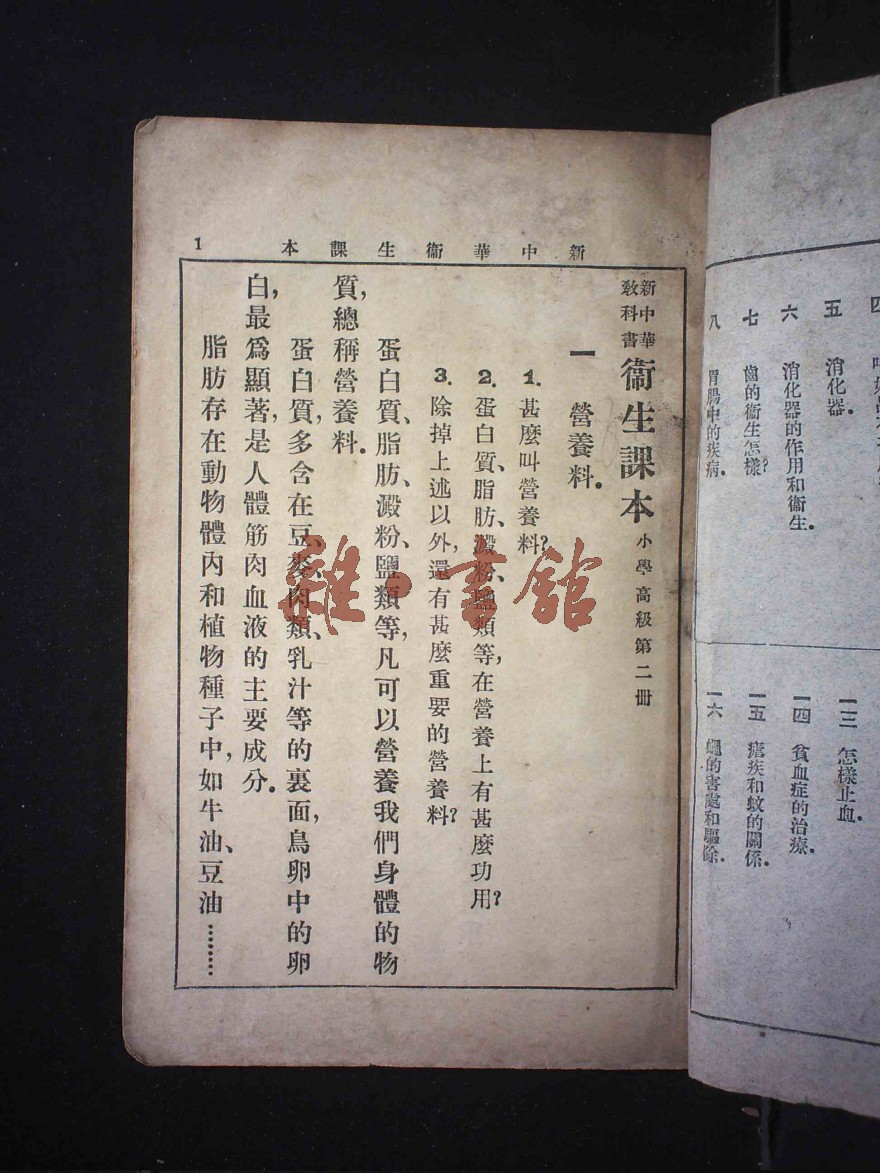 新中華衞生課本
1
新中華
教科書
衞生課本 小學高級第二冊
一 營養料.
1. 甚麼叫營養料?
2. 蛋白質、脂肪、澱粉、鹽類等,在營養上有甚麼功用?
3. 除掉上述以外,還有甚麼重要的營養料?
蛋白質、脂肪、澱粉、鹽類等,凡可以營養我們身體的物
質,總稱營養料.
蛋白質,多含在豆、麥、肉類、乳汁等的裏面,鳥卵中的卵
白,最爲顯著,是人體筋肉血液的主要成分.
脂肪存在動物體內和植物種子中,如牛油、豆油………
五 消化器.
六 消化器的作用和衞生.
七 齒的衞生怎樣?
八 胃腸中的疾病.
一三 怎樣止血.
一四 貧血症的治療.
一五 瘧疾和蚊的關係.
一六 蠅的害處和驅除.
雜書館